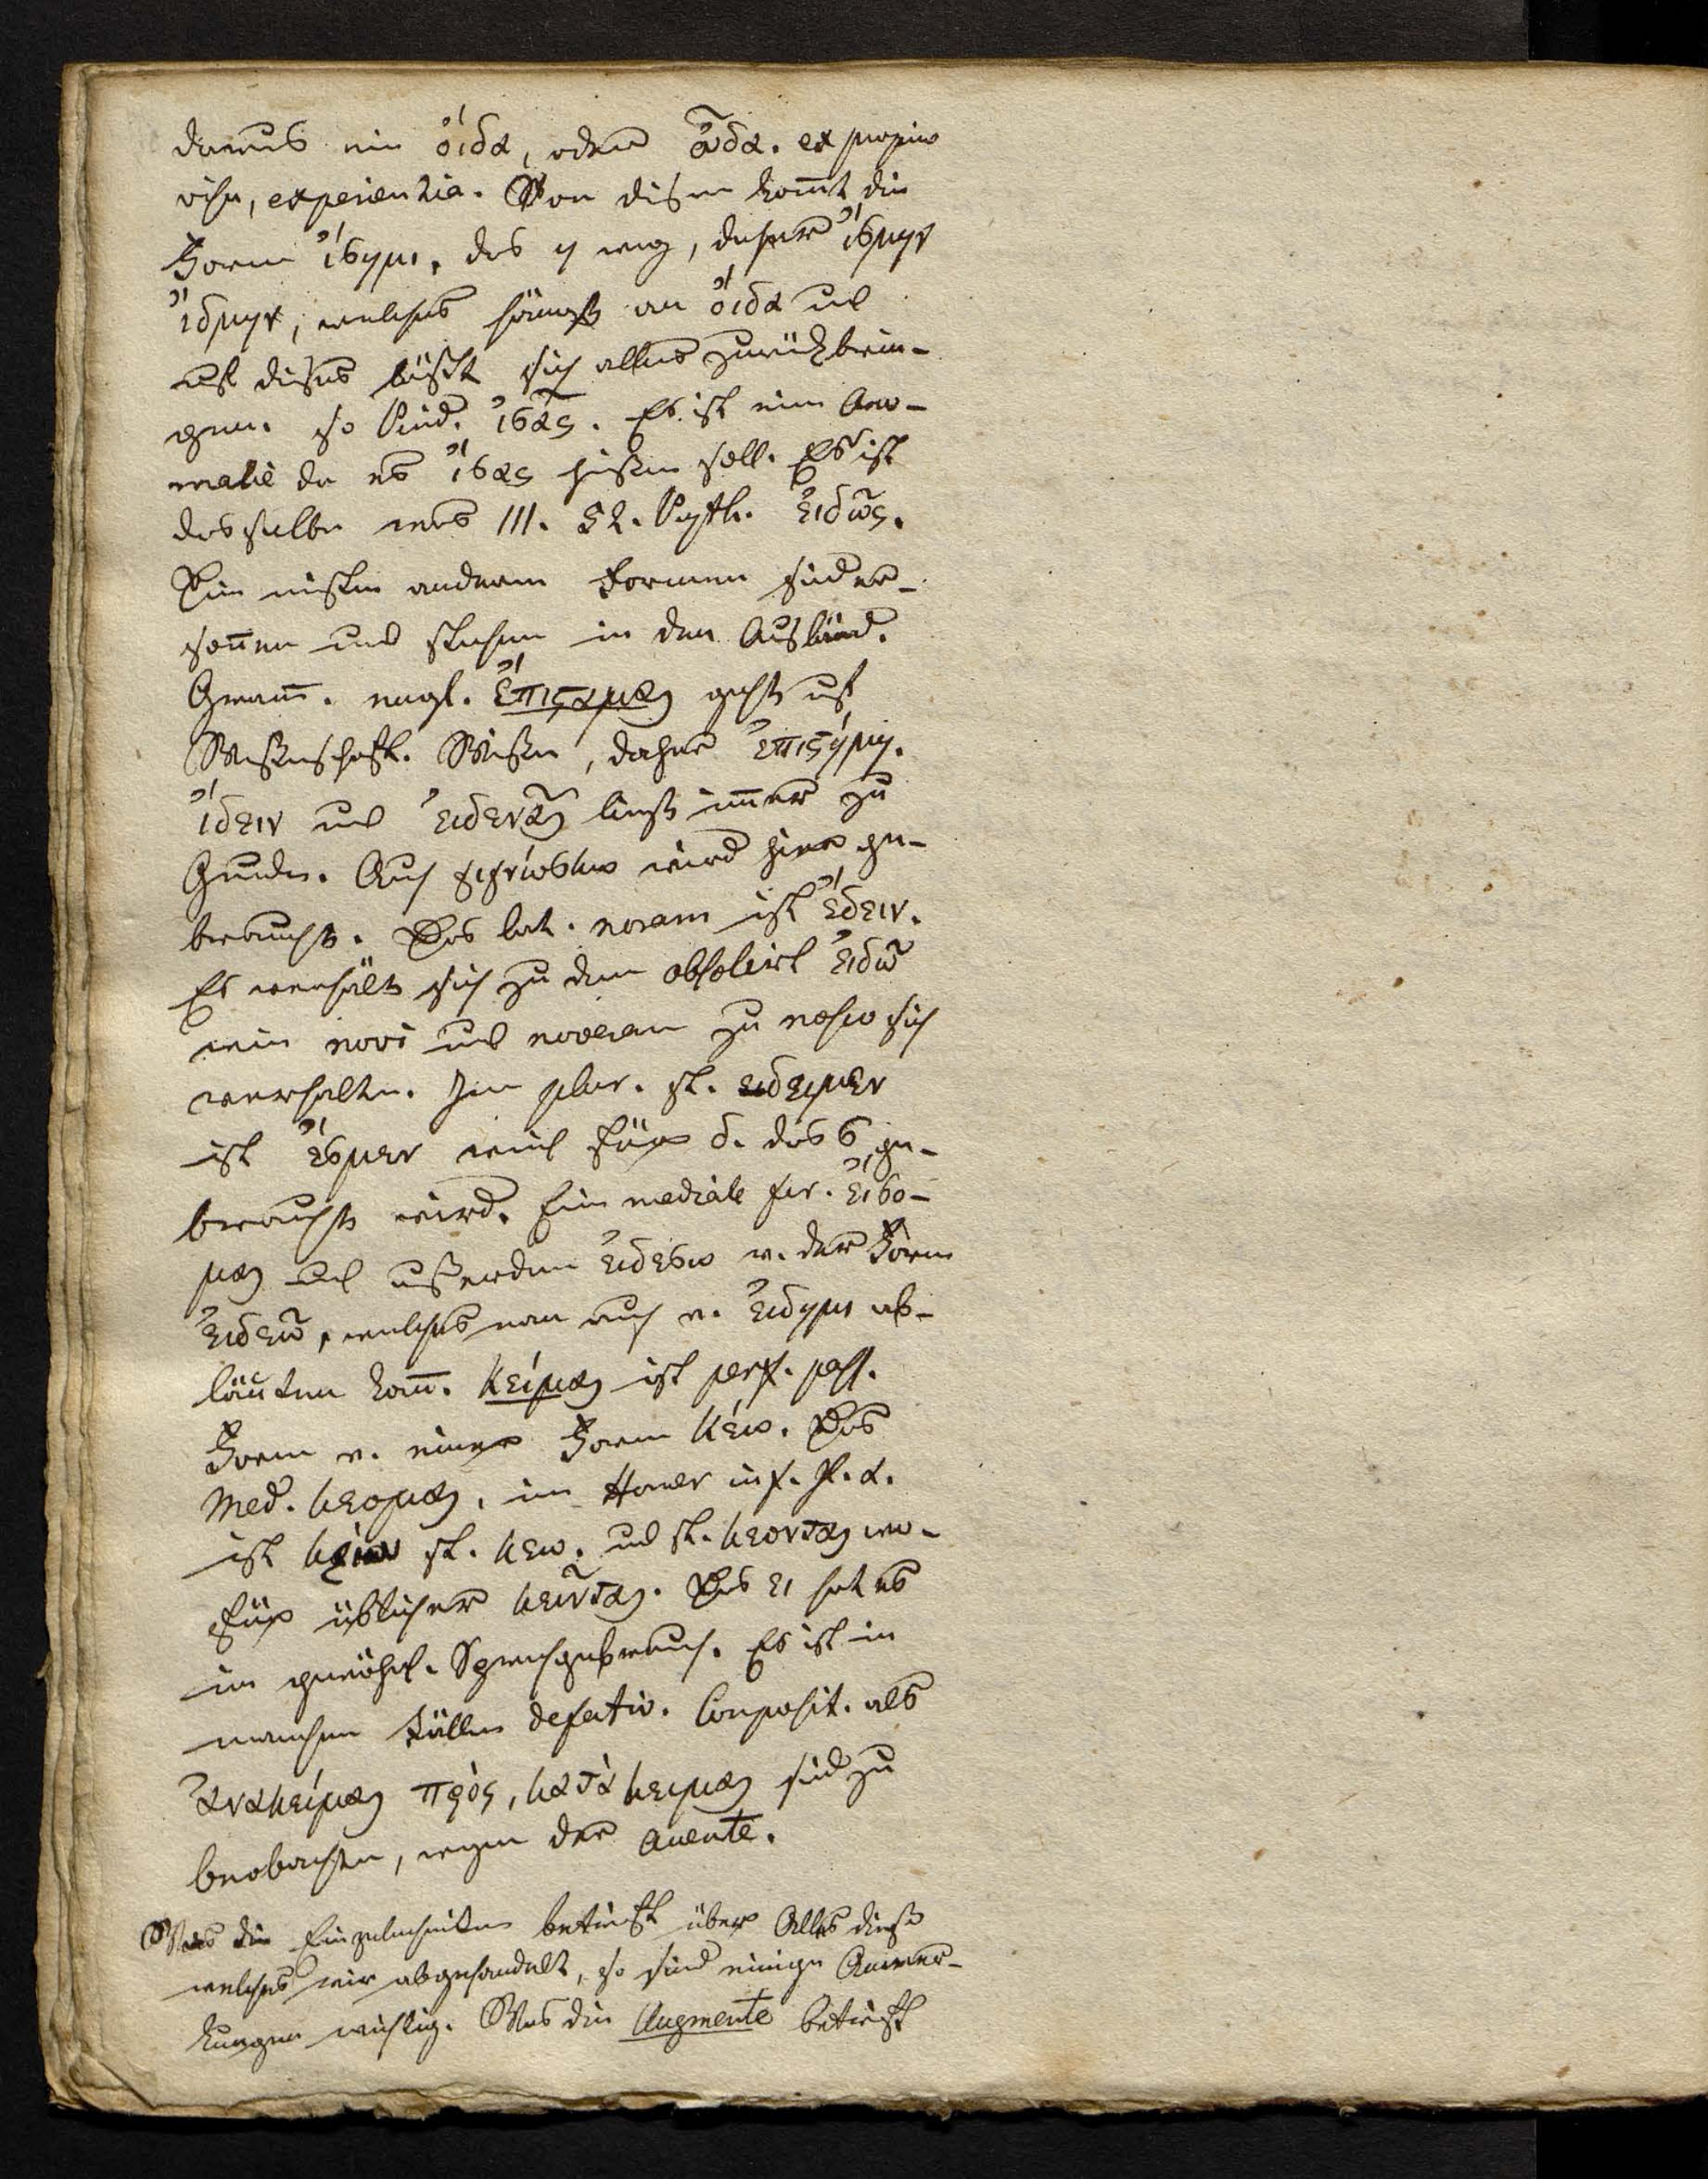 daraus ein ὄιδα, oder ὦδα. ex proprio
visu, experientia. Von disem kom̄t die
Form ἴσημι, das η weg, daher ἴσμην
ἴδμην, welches hängt an ὄιδα und
auf dises läßt sich alles zurückbrin-
gen. so Pind. ἰσᾶς. Es ist eine Ano-
malie da es ἴσας heißen soll. Es ist
dasselbe was III. 52. Pyth. εἰδῶς.
Die meisten anderen Formen sind er-
son̄en und stehen in den Ausländ.
Gram̄. engl. ἐπίςαμαι geht auf
Wißenschaft. Wißen, daher ἐπιςήμη.
ἴδειν und εἰδενᾶι ließ im̄er zu
Grunde. Auch γιγνώσκω wird hier ge-
braucht. Das lat. noram ist ἔδειν.
Es verhält sich zu dem obsolirt εἰδῶ
wie novi und noveram zu nosco sich
verhalten. Im plur. st. ειδειμεν
ist ἔσμεν weil für δ. das σ ge-
braucht wird. Ein mediale fur. εἴσο-
μαι und außerdem εἰδεσω v. der Form
εἰδεῶ, welches man auch v. εἰδημι ab-
läuten kan̄. κείμαι ist perf. pass.
Form v. einer Form κέω. Das
Med. κεομαι, im Homer inf. st.
ist st. κεω. und st. κεονται wo-
für üblicher κεινται. Das ει hat es
im gewöhnl. Sprachgebrauch. Es ist in
manchen Fällen defectiv. Composit. als
ἀνακείμαι πρὸς, κατὰ κειμαι sind zu
beobachten, wegen der Accente.
Was die Einzelnheiten betrifft über Alles diese
welches wir abgehandelt, so sind einige Anmer-
kungen wichtig. Was die Augmente betrifft